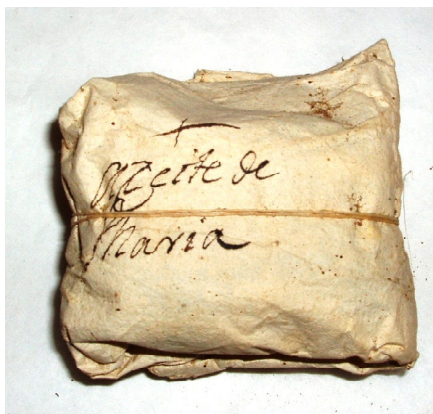 Azeite de
Maria